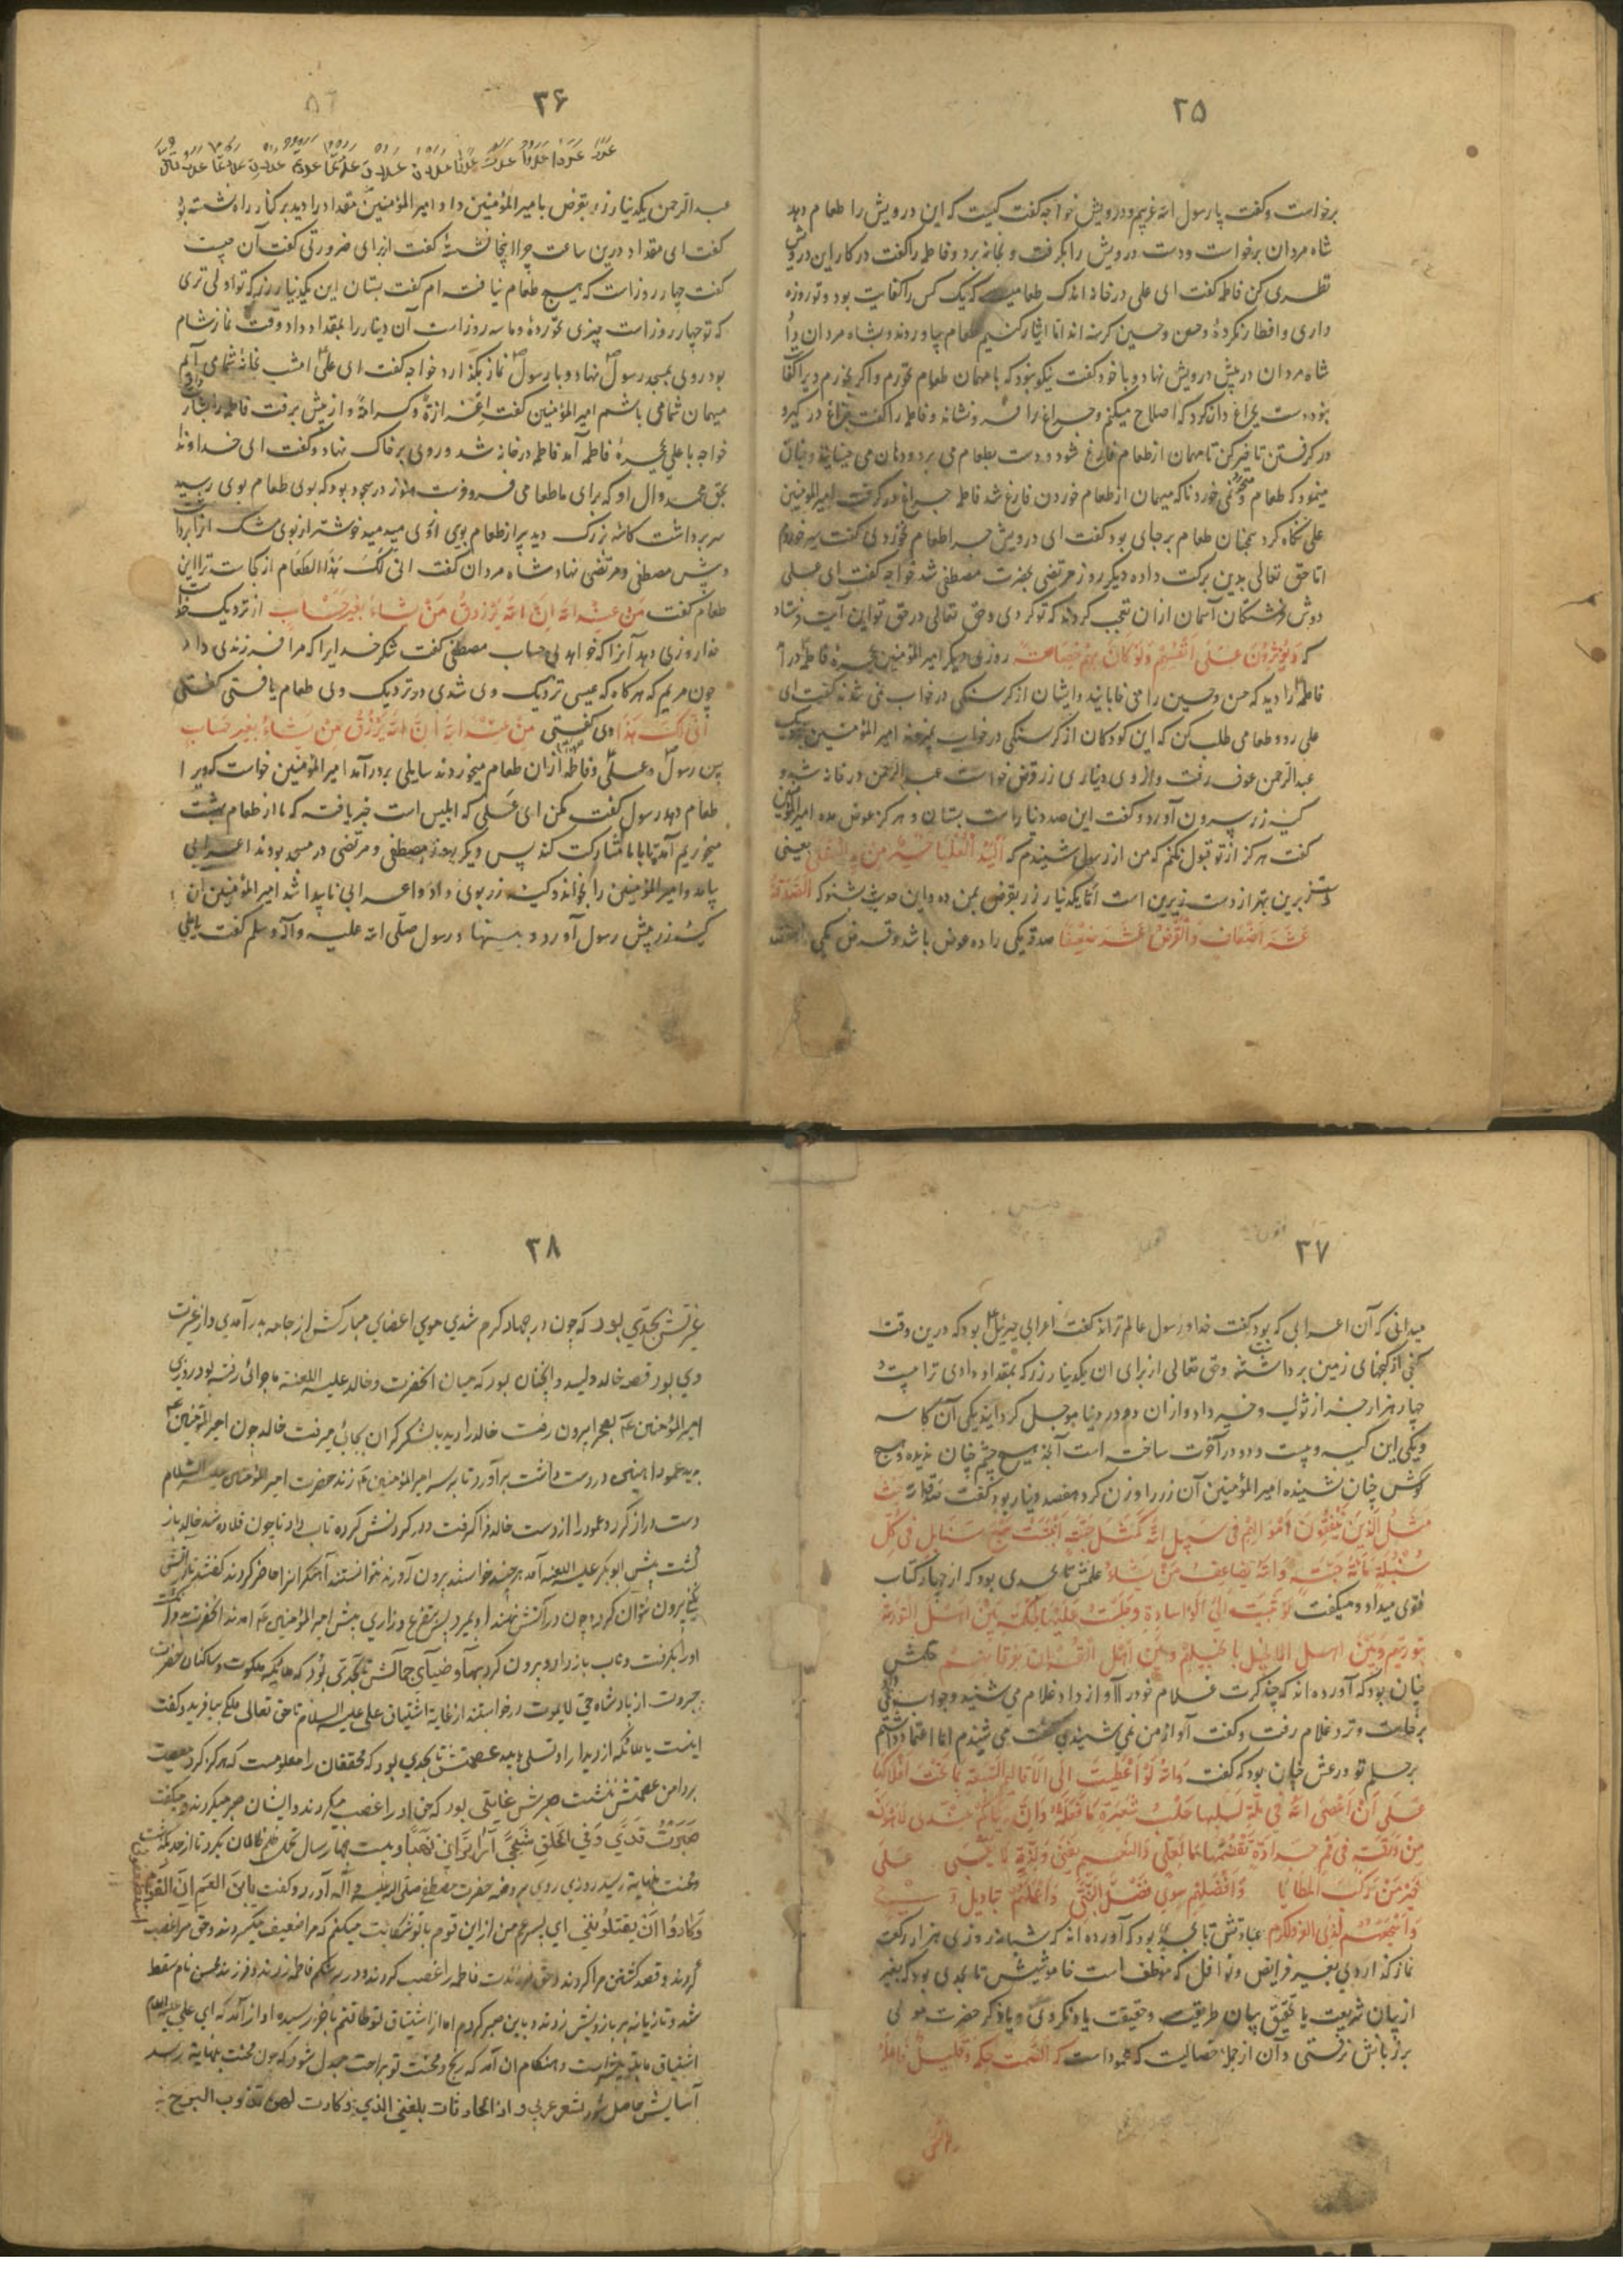 ۳۵
برخواست و گفت یا رسول الله غریبم و درویش خواجه گفت کیست که این درویش را طعام دهد
شاه مردان برخواست و دست درویش را بگرفت و بخانه برد و فاطمه را گفت در کار این درویش
نظری کن فاطمه گفت ای علی در خانه اندک طعامیست که یک کس را کفایت بود و تو روزه
داری و افطار نکردهٔ و حسن و حسین گرسنه اند اما ایثار کنیم طعام بیاوردند و شاه مردان را
شاه مردان در پیش درویش نهاد و با خود گفت نیکو نبود که با مهمان طعام نخورم و اگر بخورم ویرا کفا
نبود دست بچراغ دراز کرد که اصلاح میکنم و چراغ را فرو نشاند و فاطمه را گفت چراغ در گیر و
در گرفتن تاخیر کن تا مهمان از طعام فارغ شود و دست بطعام می برد و دهان می جنبانید و چنان
مینمود که طعام میخورد و نمی خورد تا که میهمان از طعام خوردن فارغ شد فاطمه چراغ در گرفت امیر المؤمنین
علی نگاه کرد همچنان طعام بر جای بود گفت ای درویش چرا طعام نخوردی گفت سیر خوردم
اما حق تعالی بدین برکت داده دیگر روز مرتضی بحضرت مصطفی شد خواجه گفت ای علی
دوش فرشتگان آسمان از ان تعجب کردند که تو کردی و حق تعالی در حق تو این آیت فرستاد
که وَیُؤْثِرُونَ عَلَی اَنْفُسِهِمْ وَلَوْ کَانَ بِهِمْ خَصَاصَةٌ روزی دیگر امیر المؤمنین بحجرهٔ فاطمه در آ
فاطمه را دید که حسن و حسین را می خابانید و ایشان از گرسنگی در خواب نمی شدند گفت ای
علی رو و طعامی طلب کن که این کودکان از گرسنگی در خواب نمیروند امیر المؤمنین بنزدیک
عبد الرحمن عوف رفت و از وی دیناری زر قرض خواست عبد الرحمن در خانه شد و
کیسه زر بیرون آورد و گفت این صد دینار است بستان و هرگز عوض مده امیر المؤمنین
گفت هرگز از تو قبول نکنم که من از رسول شنیدم که اَلْیَدُ الْعُلْیَا خَیْرٌ مِنْ یَدِ السُّفْلی یعنی
دست زبرین بهتر از دست زیرین است اما یکدینار زر بقرض بمن ده و این حدیث شنو که الصَّدَقَةُ
عَشَرَ اَضْعَافٍ وَالْقَرْضُ عَشَرَ ضِعْفًا صدقه یکی را ده عوض باشد و قرض یکی را
۳۶
عبد الرحمن یکدینار زر بقرض بامیر المؤمنین داد امیر المؤمنین مقداد را دید بر کنار راه نشسته بو
گفت ای مقداد درین ساعت چرا اینجا نشستهٔ گفت از برای ضرورتی گفت آن چیست
گفت چهار روز است که هیچ طعام نیافته ام گفت بستان این یکدینار زر که تو اولی تری
که تو چهار روز است چیزی نخوردهٔ و ما سه روز است آن دینار را بمقداد داد وقت نماز شام
بود روی بمسجد رسول نهاد و با رسول نماز بگذارد خواجه گفت ای علی امشب بخانهٔ شما می آیم
میهمان شما می باشم امیر المؤمنین گفت اعزازة و کرامة و از پیش برفت فاطمه را بشارت
خواجه با علی بحجرهٔ فاطمه آمد فاطمه در خانه شد و روی بر خاک نهاد و گفت ای خداوندا
بحق محمد و ال او که برای ما طعامی فرو فرست هنوز در سجود بود که بوی طعام بوی رسید
سر برداشت کاسه بزرگ دید پر از طعام بویی از وی میدمید خوشتر از بوی مشک
و پیش مصطفی و مرتضی نهاد شاه مردان گفت انّی لَکَ هَذَا الطَعَام از کجاست ترا این
طعام گفت مِنْ عِنْدِ اللهِ اِنَّ اللهَ یَرْزُقُ مَنْ یَشَاءُ بِغَیْرِ حِسَابٍ از نزدیک خدا
خدا روزی دهد آنرا که خواهد بی حساب مصطفی گفت شکر خدایرا که مرا فرزندی داد
چون مریم که هر گاه که عیسی نزدیک وی شدی در نزدیک وی طعام یافتی گفتی
اَنّی لَکِ هَذَا وی گفتی مِنْ عِنْدِ اللهِ اِنَّ اللهَ یَرْزُقُ مَنْ یَشَاءُ بِغَیْرِ حِسَاب
پس رسول و علی و فاطمه از ان طعام میخوردند سایلی بر در آمد امیر المؤمنین خواست که ویرا
طعام دهد رسول گفت مکن ای علی که ابلیس است خبر یافته که ما از طعام بهشت
میخوریم آمد تا با ما مشارکت کند پس دیگر روز مصطفی و مرتضی در مسجد بودند اعرابی
بیامد و امیر المؤمنین را بخواند و کیسه زر بوی داد و اعرابی ناپیدا شد امیر المؤمنین آن
کیسه زر پیش رسول آورد و بنهاد رسول صلی الله علیه و آله و سلم گفت یا علی
۳۷
میدانی که آن اعرابی که بود گفت خدا و رسول عالم تراند گفت اعرابی جبرئیل بود که درین وقت
گنجی از گنجهای زمین برداشته و حق تعالی از برای ان یکدینار زر که بمقداد دادی ترا بیست و
چهار هزار جزء از ثواب و خیر داد و از ان دو در دنیا موجل کردانید یکی آن کاسه
و یکی این کیسه و بیست و دو در آخرت ساخته است آنچه هیچ چشم چنان ندیده و هیچ
گوش چنان نشنیده امیر المؤمنین آن زر را وزن کرد هفصد دینار بود گفت صدق الله
مَثَلُ الَّذِینَ یُنْفِقُونَ اَمْوَالَهُمْ فِی سَبِیلِ اللهِ کَمَثَلِ حَبَّةٍ اَنْبَتَتْ سَبْعَ سَنَابِلَ فِی کُلِّ
سُنْبُلَةٍ مِائَةُ حَبَّةٍ وَاللهُ یُضَاعِفُ مَنْ یَشَاءُ علمش تا بحدی بود که از چهار کتاب
فتوی میداد و میگفت لَوْ ثُنِیَتْ اِلَیَّ الْوِسَادَةُ وَجَلَسْتُ عَلَیْهَا لَحَکَمْتُ بَیْنَ اَهْلِ التَّوریة
بتوریتهم وَبَیْنَ اهل الانجیل بانجیلهم وبین اهل الفرقان بفرقانهم حلمش
چنان بود که آورده اند که چند کرت غلام خود را آواز داد غلام می شنید و جواب نمی
برخاست و نزد غلام رفت و گفت آواز من نمی شنیدی گفت می شنیدم اما اعتماد داشتم
بر حلم تو ورعش چنان بود که گفت وَاللهِ لَوْ اُعْطِیتُ الْاَقَالِیمَ السَّبْعَةَ بِمَا تَحْتَ اَفْلَاکِهَا
عَلَی اَنْ اَعْصِیَ اللهَ فِی نَمْلَةٍ اَسْلُبُهَا جُلْبَ شَعِیرَةٍ مَا فَعَلْتُهُ وَاِنَّ دُنْیَاکُمْ عِنْدِی لَاَهْوَنُ
مِنْ وَرَقَةٍ فِی فَمِ جَرَادَةٍ تَقْضَمُهَا مَا لِعَلِیٍّ وَلِنَعِیمٍ یَفْنَی وَلَذَّةٍ لَا تَبْقَی علی
خَیْرُ مَنْ رَکِبَ المطَایَا وَاَفْضَلُهُمْ
عبادتش تا بحدی بود که آورده اند که شبانه روزی هزار رکعت
نماز گذاردی بغیر فرایض و نوافل که موظف است خاموشیش تا بحدی بود که بغیر
از بیان شریعت یا تحقیق بیان طریقت و حقیقت یاد نکردی و یا ذکر حضرت مولی
بر زبانش نرفتی و آن از جمله خصالیست که محمود است که الصَّمتُ حِکَمٌ وقَلِیلٌ فَاعِلُهُ
۳۸
غیرتش بحدّی بود که چون در جهاد گرم شدی موی اعضای مبارکش از جامه بدر آمدی و از غیرت
وی بود قصه خالد ولید و آنچنان بود که میان انحضرت و خالد علیه اللعنة ماجرائی رفته بود روزی
امیر المؤمنین بصحرا بیرون رفت خالد را دید با لشکر گران بجائی میرفت خالد چون امیر المؤمنین
بدید عمود اهنین در دست داشت بر آورد تا بر سر امیر المؤمنین زند حضرت امیر المؤمنین علیه السلام
دست دراز کرد و عمود را از دست خالد فرا گرفت و در گردنش کرده تاب داد تا چون قلاده شد خالد باز
گشت پیش ابو بکر علیه اللعنه آمد هر چند خواستند بیرون آورند نتوانستند آهنگرانرا حاضر کردند گفتند تا در آتش
نکنی بیرون نتوان کرد و چون در آتش نهند او بمیرد پس بتضرع و زاری پیش امیر المؤمنین آمدند انحضرت
او را بگرفت و تاب باز داد و بیرون کرد بهآء و ضیآء جمالش تا بحدّی بود که ملائکه ملکوت و ساکنان حضرت
جبروت از پادشاه حی لا یموت درخواستند از غایة اشتیاق علی علیه السلام تا حق تعالی ملکی بیافرید و گفت
اینست یا ملائکه از دیدار او تسلی یابید عصمتش تا بحدی بود که محققان را معلومست که هرگز گرد معصیت
بر دامن عصمتش ننشست صبرش بغایتی بود که حق او را غصب میکردند و ایشان صبر میکردند و میگفت
صَبَرْتُ وَفِی الْعَیْنِ قَذًی وَفِی الْحَلْقِ شَجًی اَرَی تُرَاثِی نَهْبًا و بیست و چهار سال تحمل ظلم ظالمان بکرد تا از حد بگذشت
و محنت بنهایة رسید روزی روی بروضه حضرت مصطفی صلی الله علیه و آله آورد و گفت یابن العم اِنَّ القَوْمَ
وَکَادُوا اَنْ یَقْتُلُونَنِی ای پسر عم من از این قوم با تو شکایت میکنم که مرا ضعیف میگیرند و حق مرا غصب
کردند و قصد کشتن من کردند و حق فرزندت فاطمه را غصب کردند و در بر شکم فاطمه زدند و فرزند محسن نام سقط
شد و تازیانه بر بازویش زدند و باین صبر کردم اما از اشتیاق تو طاقتم بآخر رسیده آواز آمد که ای علی
اشتیاق ما بتو بیشتر است و هنگام ان آمد که رنج و محنت تو براحت مبدل شود که چون محنت بنهایة رسد
آسایش حاصل شود شعر عربی و اذا الحادثات بلغن الذی و کادت لهن تذوب المهج